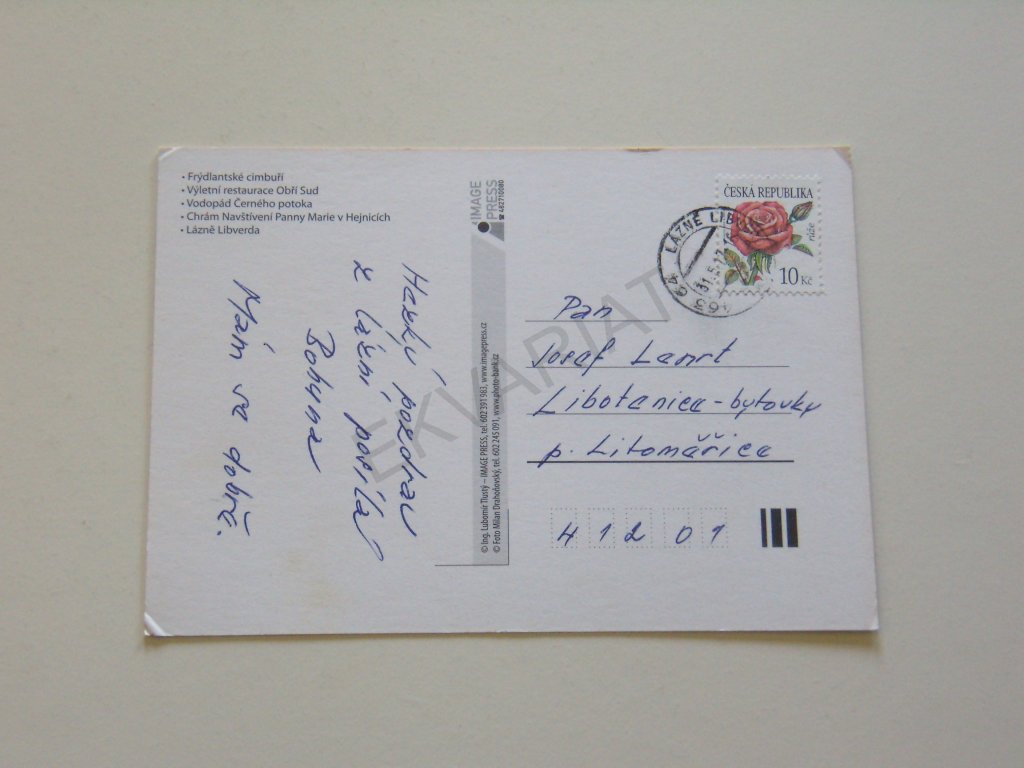 • Frýdlantské cimbuří
• Výletní restaurace Obří Sud
• Vodopád Černého potoka
• Chrám Navštívení Panny Marie v Hejnicích
• Lázně Libverda
Hezký pozdrav
z lázní posílá
Bohuna
Mám se dobře.
IMAGE
PRESS
☎ 482710080
© Ing. Lubomír Tlustý – IMAGE PRESS, tel. 602 391 983, www.imagepress.cz
© Foto Milan Drahoňovský, tel. 602 245 091, www.photo-bank.cz
ČESKÁ REPUBLIKA
růže
10 Kč
463 64 LÁZNĚ
Pan
Josef
p. Litoměřice
412 01
EKVARIAT